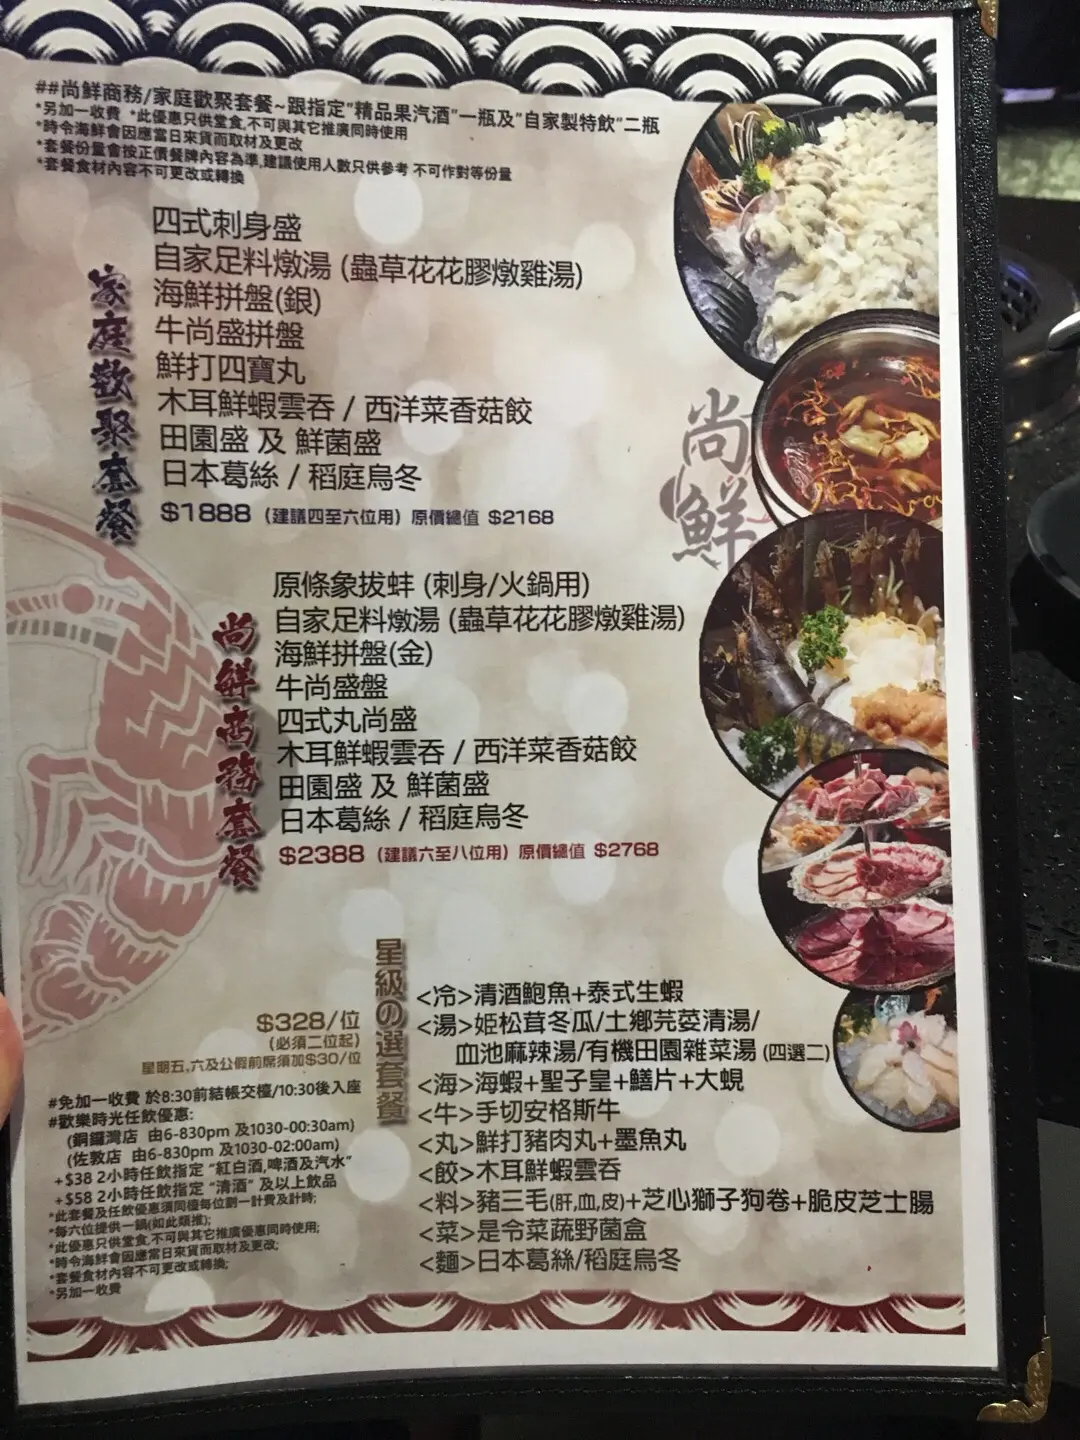 ##尚鮮商務/家庭歡聚套餐~跟指定"精品果汽酒"一瓶及"自家製特飲"二瓶
*另加一收費 *此優惠只供堂食,不可與其它推廣同時使用
*時令海鮮會因應當日來貨而取材及更改
*套餐份量會按正價餐牌內容為準,建議使用人數只供參考 不可作對等份量
*套餐食材內容不可更改或轉換
家庭歡聚套餐
四式刺身盛
自家足料燉湯 (蟲草花花膠燉雞湯)
海鮮拼盤(銀)
牛尚盛拼盤
鮮打四寶丸
木耳鮮蝦雲吞 / 西洋菜香菇餃
田園盛 及 鮮菌盛
日本葛絲 / 稻庭烏冬
$1888 (建議四至六位用) 原價總值 $2168
尚鮮
尚鮮商務套餐
原條象拔蚌 (刺身/火鍋用)
自家足料燉湯 (蟲草花花膠燉雞湯)
海鮮拼盤(金)
牛尚盛盤
四式丸尚盛
木耳鮮蝦雲吞 / 西洋菜香菇餃
田園盛 及 鮮菌盛
日本葛絲 / 稻庭烏冬
$2388 (建議六至八位用) 原價總值 $2768
星級の選套餐
$328/位
(必須二位起)
星期五,六及公假前席須加$30/位
<冷>清酒鮑魚+泰式生蝦
<湯>姫松茸冬瓜/土鄉芫荽清湯/
血池麻辣湯/有機田園雜菜湯 (四選二)
<海>海蝦+聖子皇+鱔片+大蜆
<牛>手切安格斯牛
<丸>鮮打豬肉丸+墨魚丸
<餃>木耳鮮蝦雲吞
<料>豬三毛(肝,血,皮)+芝心獅子狗卷+脆皮芝士腸
<菜>是令菜蔬野菌盒
<麵>日本葛絲/稻庭烏冬
#免加一收費 於8:30前結帳交檯/10:30後入座
#歡樂時光任飲優惠:
(銅鑼灣店 由6-830pm 及1030-00:30am)
(佐敦店 由6-830pm 及1030-02:00am)
+$38 2小時任飲指定 "紅白酒,啤酒及汽水"
+$58 2小時任飲指定 "清酒" 及以上飲品
*此套餐及任飲優惠須同檯每位劃一計費及計時;
*每六位提供一鍋(如此類推);
*此優惠只供堂食,不可與其它推廣優惠同時使用;
*時令海鮮會因應當日來貨而取材及更改;
*套餐食材內容不可更改或轉換;
*另加一收費